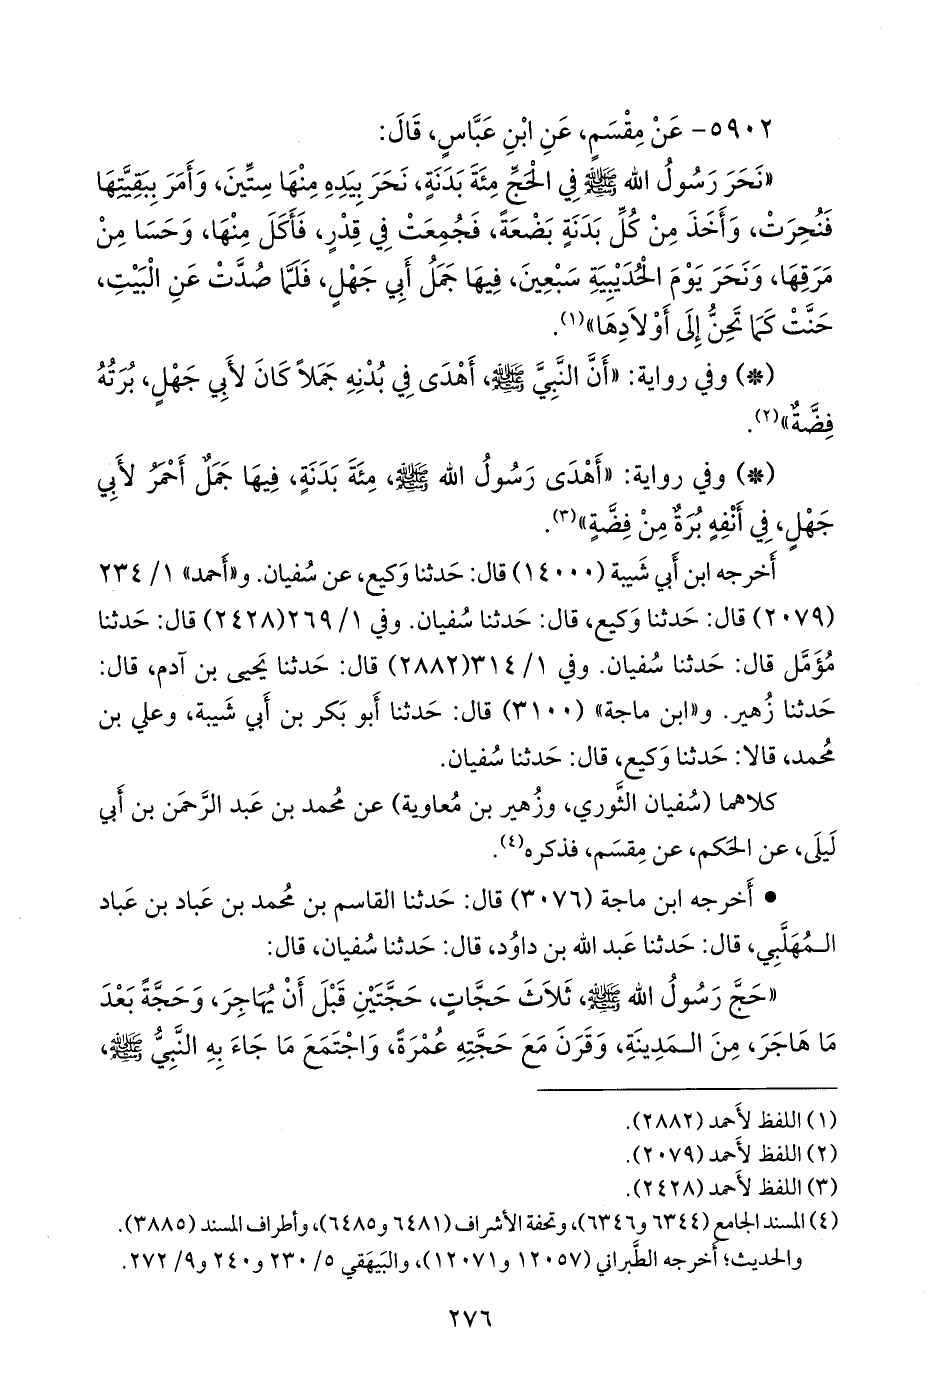 ٥٩٠٢- عَنْ مِقْسَمٍ، عَنِ ابْنِ عَبَّاسٍ، قَالَ:
«نَحَرَ رَسُولُ الله ﷺ فِي الْحَجِّ مِئَةَ بَدَنَةٍ، نَحَرَ بِيَدِهِ مِنْهَا سِتِّينَ، وَأَمَرَ بِبَقِيَّتِهَا
فَنُحِرَتْ، وَأَخَذَ مِنْ كُلِّ بَدَنَةٍ بَضْعَةً، فَجُمِعَتْ فِي قِدْرٍ، فَأَكَلَ مِنْهَا، وَحَسَا مِنْ
مَرَقِهَا، وَنَحَرَ يَوْمَ الْحُدَيْبِيَةِ سَبْعِينَ، فِيهَا جَمَلُ أَبِي جَهْلٍ، فَلَمَّا صُدَّتْ عَنِ الْبَيْتِ،
حَنَّتْ كَمَا تَحِنُّ إِلَى أَوْلَادِهَا»(١).
(*) وفي رواية: «أَنَّ النَّبِيَّ ﷺ، أَهْدَى فِي بُدْنِهِ جَمَلاً كَانَ لأَبِي جَهْلٍ، بُرَتُهُ
فِضَّةٌ»(٢).
(*) وفي رواية: «أَهْدَى رَسُولُ الله ﷺ، مِئَةَ بَدَنَةٍ، فِيهَا جَمَلٌ أَحْمَرُ لأَبِي
جَهْلٍ، فِي أَنْفِهِ بُرَةٌ مِنْ فِضَّةٍ»(٣).
أَخرجه ابن أَبي شَيبة (١٤٠٠٠) قال: حَدثنا وَكيع، عن سُفيان. و«أَحمد» ١/ ٢٣٤
(٢٠٧٩) قال: حَدثنا وَكيع، قال: حَدثنا سُفيان. وفي ١/ ٢٦٩(٢٤٢٨) قال: حَدثنا
مُؤَمَّل قال: حَدثنا سُفيان. وفي ١/ ٣١٤(٢٨٨٢) قال: حَدثنا يَحيى بن آدم، قال:
حَدثنا زُهير. و«ابن ماجة» (٣١٠٠) قال: حَدثنا أَبو بَكر بن أَبي شَيبة، وعلي بن
مُحمد، قالا: حَدثنا وَكيع، قال: حَدثنا سُفيان.
كلاهما (سُفيان الثَّوري، وزُهير بن مُعاوية) عن مُحمد بن عَبد الرَّحمَن بن أَبي
لَيلَى، عن الحَكم، عن مِقسَم، فذكره(٤).
• أَخرجه ابن ماجة (٣٠٧٦) قال: حَدثنا القاسم بن مُحمد بن عَباد بن عَباد
الـمُهَلَّبِي، قال: حَدثنا عَبد الله بن داوُد، قال: حَدثنا سُفيان، قال:
«حَجَّ رَسُولُ الله ﷺ، ثَلاَثَ حَجَّاتٍ، حَجَّتَيْنِ قَبْلَ أَنْ يُهَاجِرَ، وَحَجَّةً بَعْدَ
مَا هَاجَرَ، مِنَ الـمَدِينَةِ، وَقَرَنَ مَعَ حَجَّتِهِ عُمْرَةً، وَاجْتَمَعَ مَا جَاءَ بِهِ النَّبِيُّ ﷺ،
(١) اللفظ لأَحمد (٢٨٨٢).
(٢) اللفظ لأَحمد (٢٠٧٩).
(٣) اللفظ لأَحمد (٢٤٢٨).
(٤) المسند الجامع (٦٣٤٤ و٦٣٤٦)، وتحفة الأشراف (٦٤٨١ و٦٤٨٥)، وأطراف المسند (٣٨٨٥).
والحديث؛ أَخرجه الطَّبراني (١٢٠٥٧ و١٢٠٧١)، والبَيهَقي ٥/ ٢٣٠ و٢٤٠ و٩/ ٢٧٢.
٢٧٦